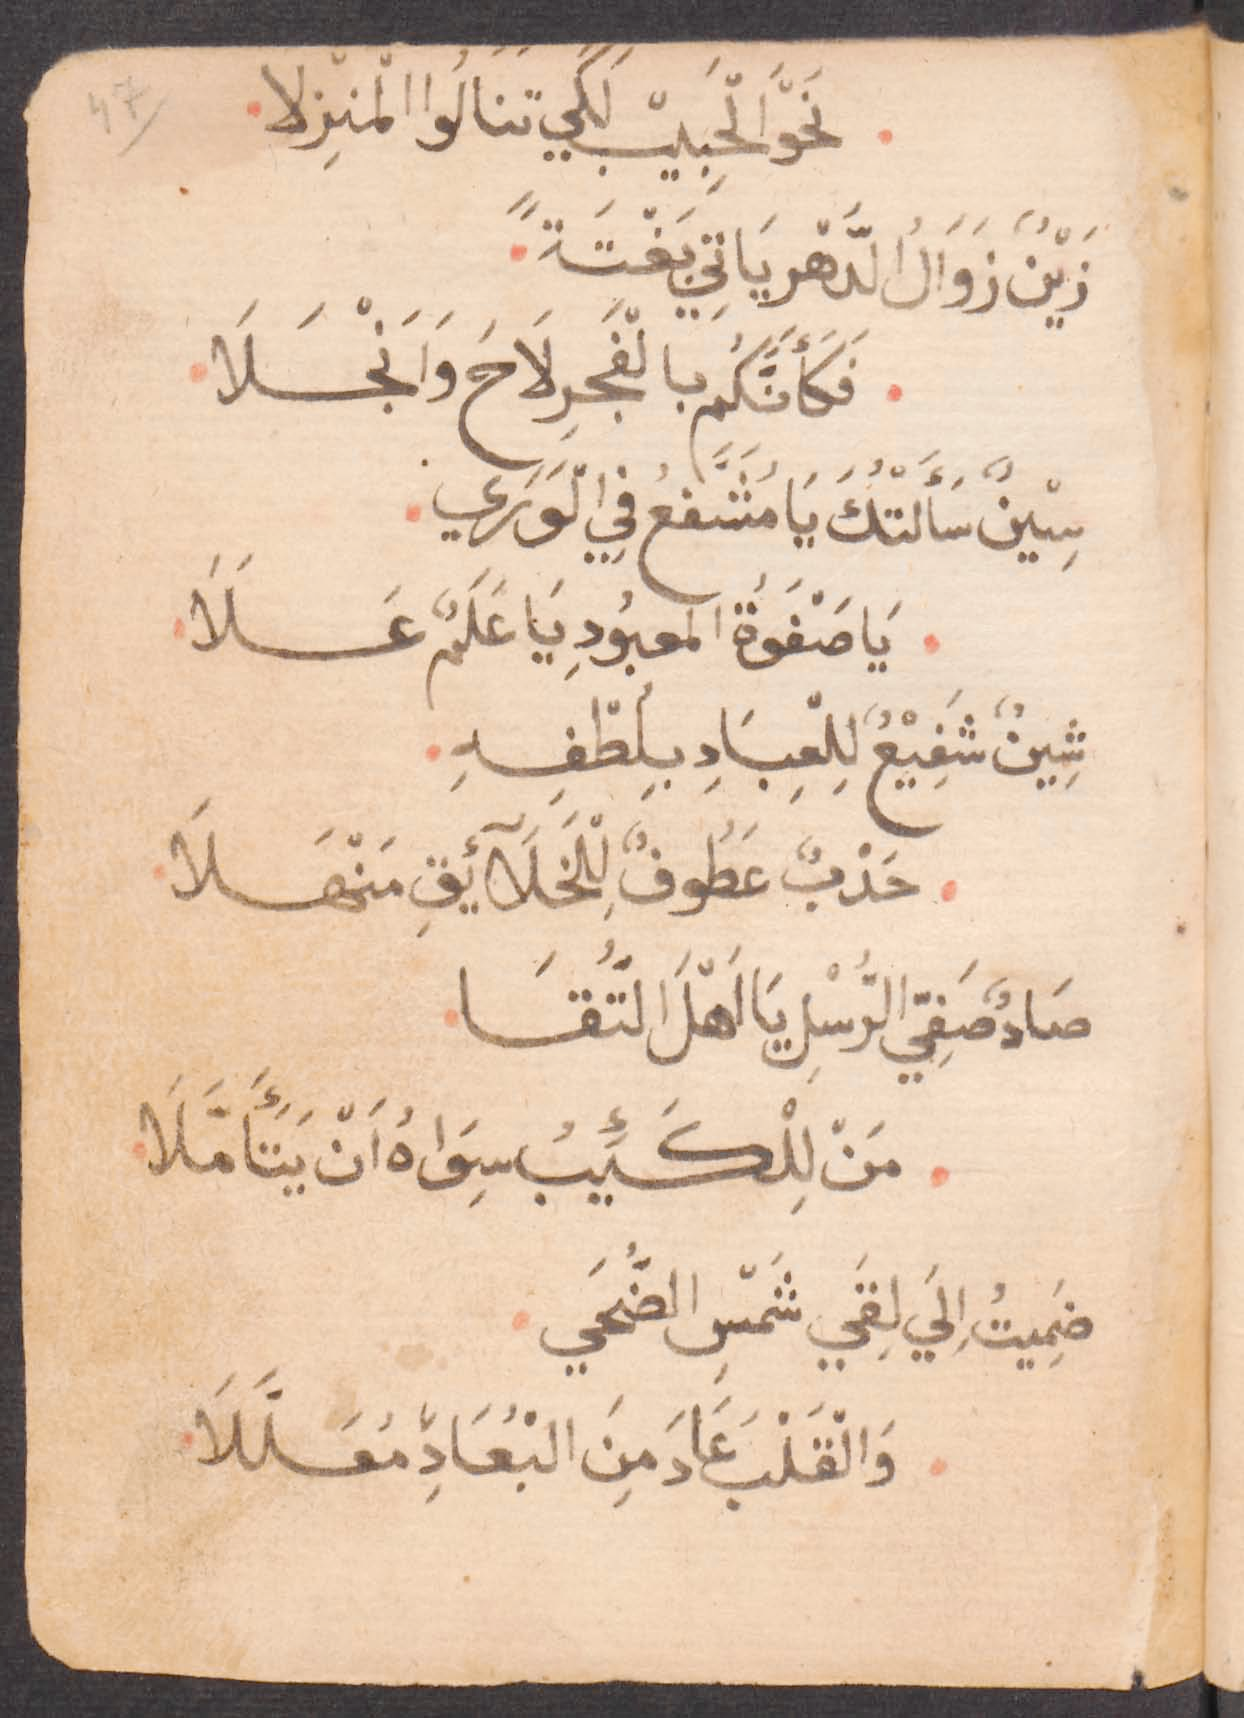 47
نَحْوَ الْحَبِيبْ لَكَي تَنَالُوا الْمَنْزِلا
زَيْنٌ زَوَالُ الدَّهْرِ يَاتِي بَغْتَةً
فَكَأَنَّكُم بالْفَجرِ لَاحَ وَانْجَلَا
سِيْنٌ سَأَلْتُكَ يَا مُشَفَّعُ فِي الْوَرَي
يَا صَفْوَةُ المعبُودِ يَا عَلَمٌ عَلَا
شِينٌ شَفِيْعٌ لِلْعِبَادِ بِلُطْفِهِ
حَدْبٌ عَطُوفٌ لِلْخَلَآئِقِ مَنْهَلَا
صَادٌ صَفِيّ الرُّسْلِ يَا اَهْلَ التُّقَا
مَنْ لِلْكَئِيبُ سِوَاهُ اَنْ يَتَأَمَّلَا
ضَمِيتُ اِلَي لِقَي شَمْسِ الضُّحَي
وَالْقَلْبَ عَادَ مِنَ الْبُعَادِ مُعَلَّلَا